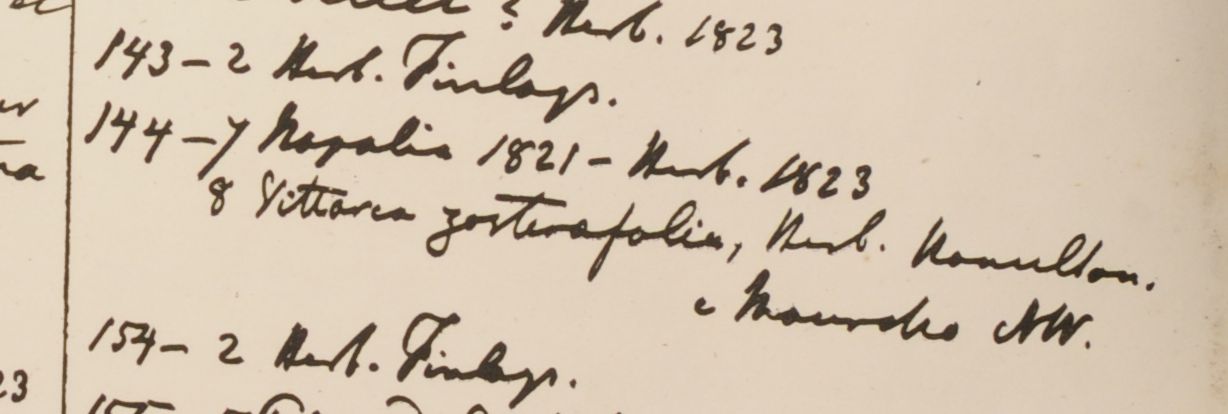 ? Herb. 1823
143-2 Herb. Finlays.
144-7 Napalia 1821 - Herb. 1823
8 Vittaria zosterafolia, Herb. Hamilton.
e Mauritio NW.
154- 2 Herb. Finlays.
23